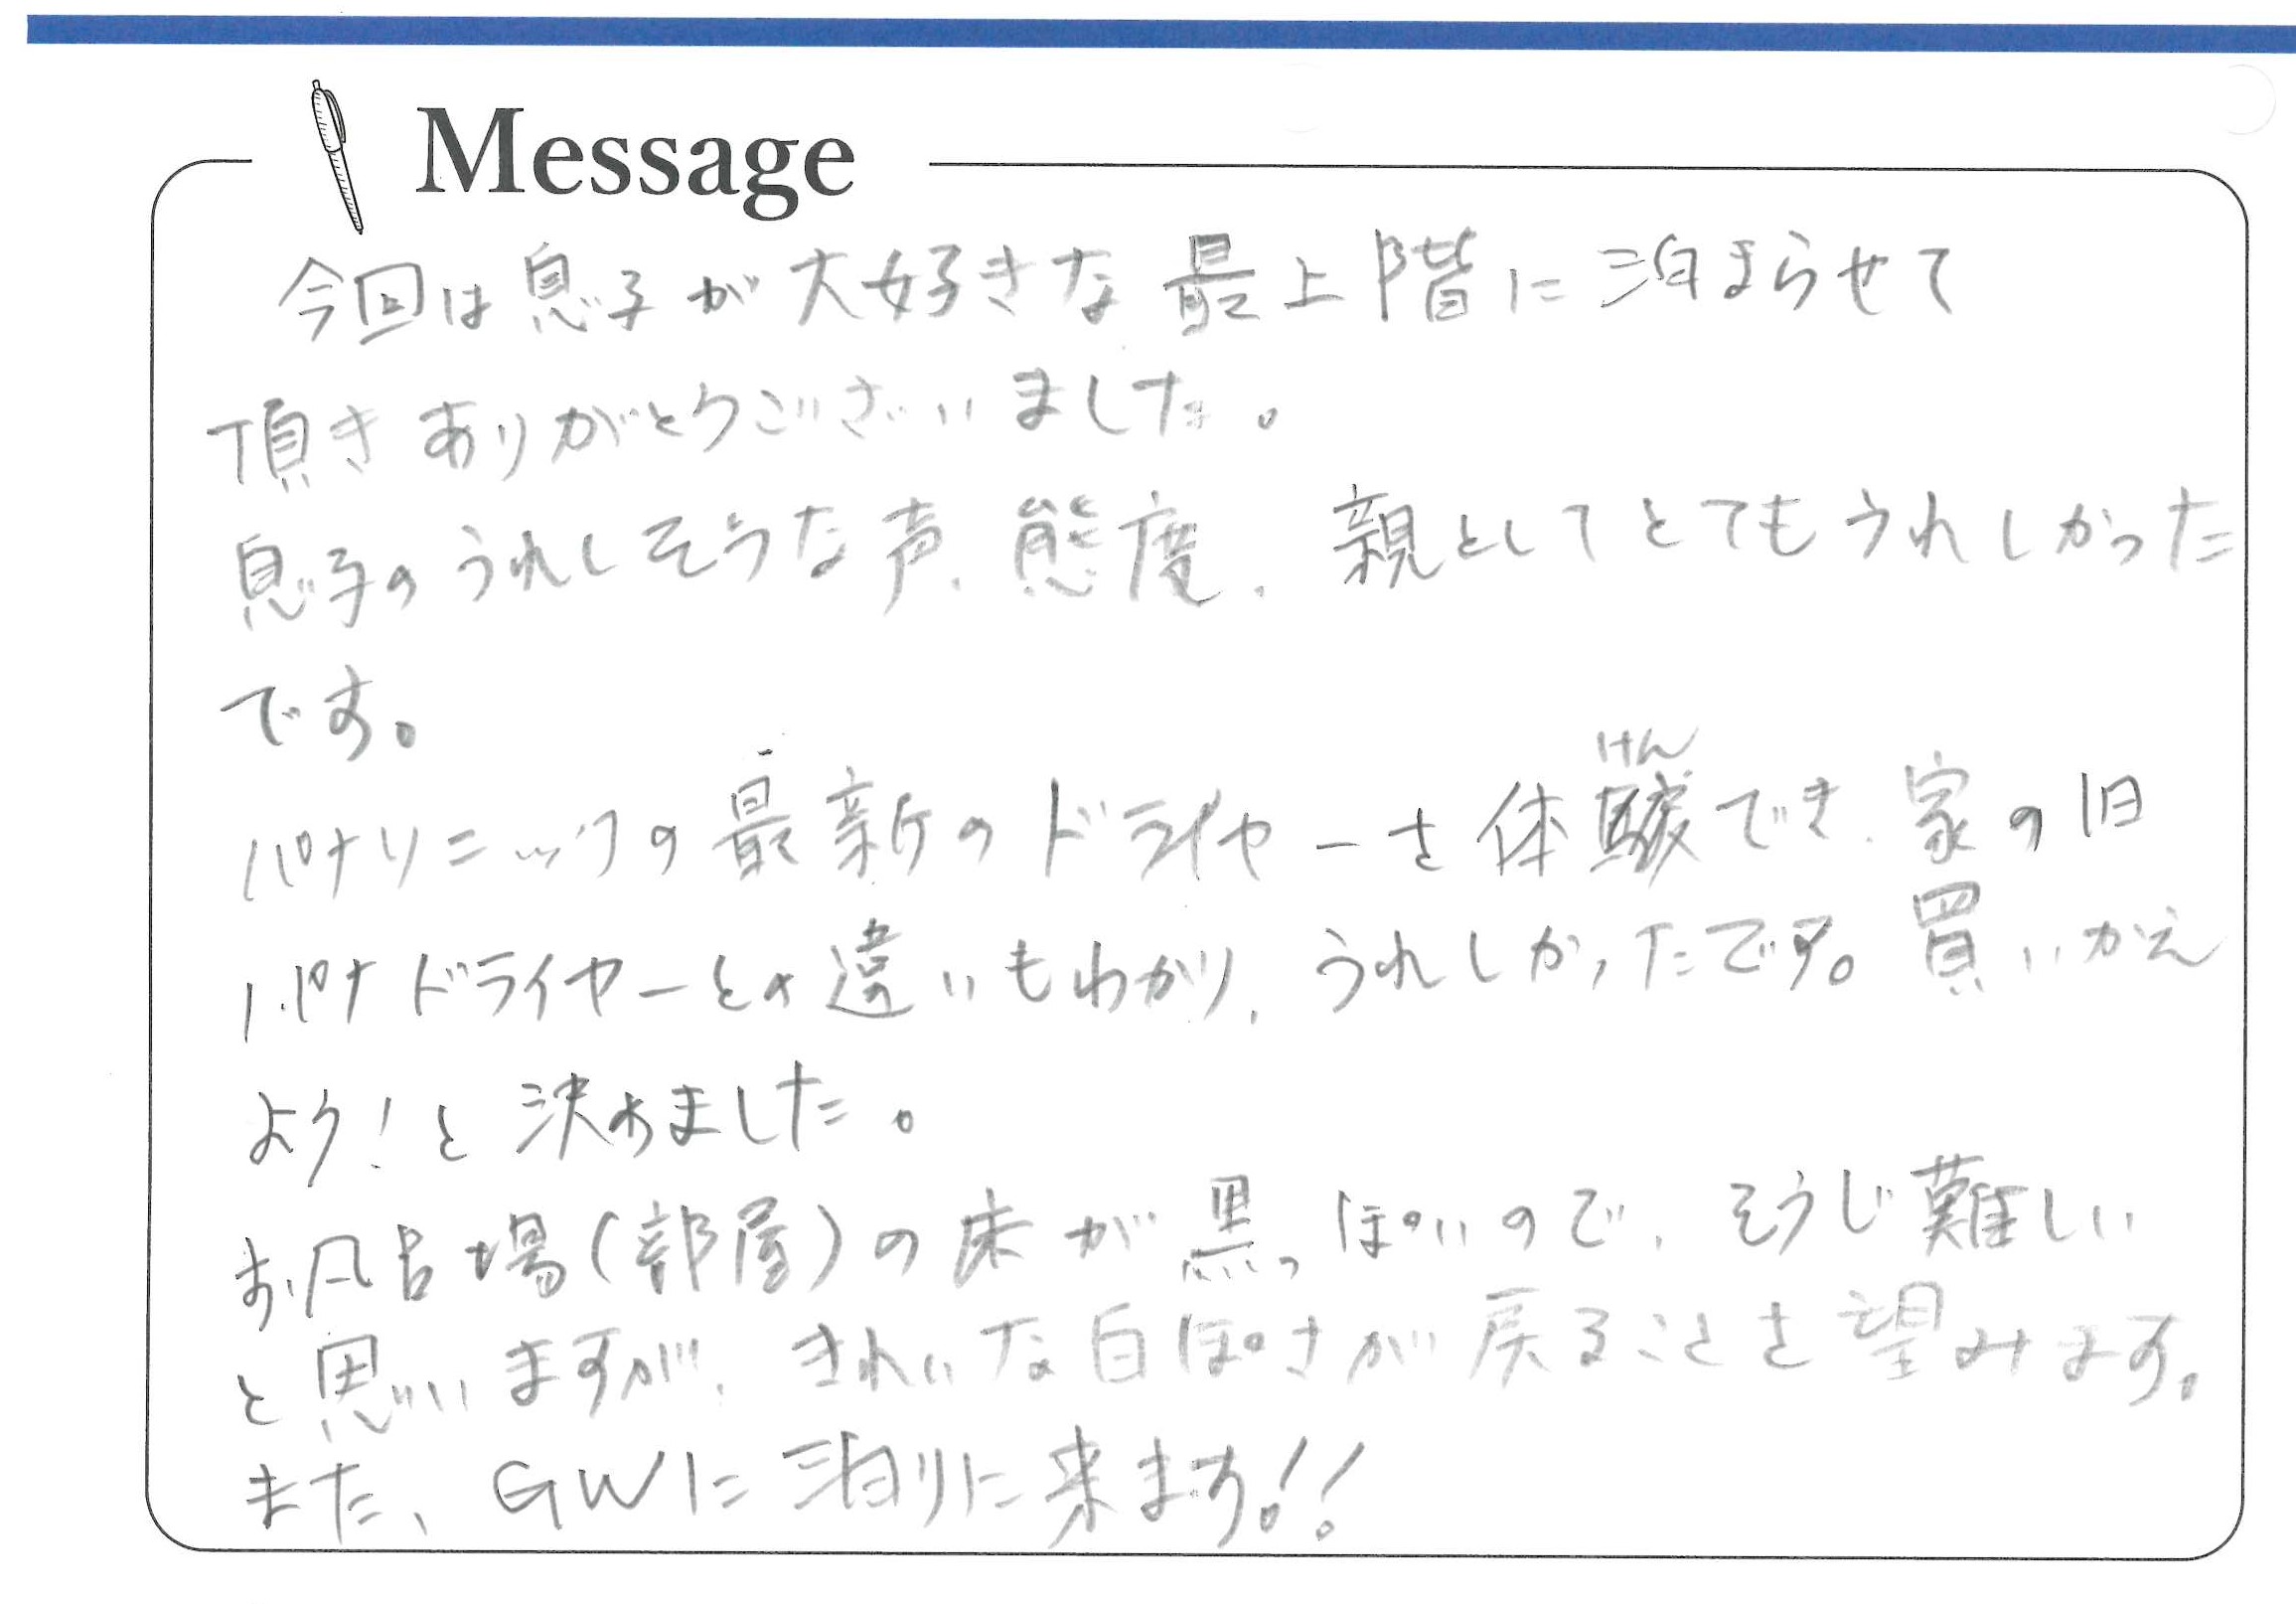 Message
今回は息子が大好きな最上階に泊まらせて
頂きありがとうございました。
息子のうれしそうな声、態度、親としてとてもうれしかった
です。
けん
パナソニックの最新のドライヤーを体験でき、家の旧
パナドライヤーとの違いもわかり、うれしかったです。買いかえ
よう!と決めました。
お風呂場(部屋)の床が黒っぽいので、そうじ難しい
と思いますが、きれいな白ぽさが戻ることを望みます。
また、GWに泊りに来ます!!